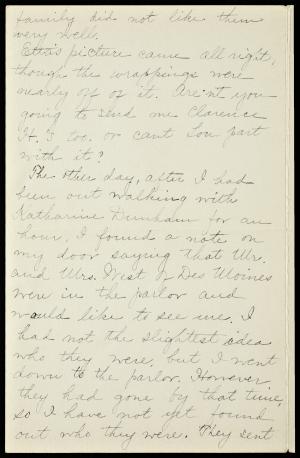 family did not like them
very well.
Etta's picture came all right,
though the wrappings were
nearly off of it. Are'nt you
going to send me Clarence
H.'s too. or cant Lou part
with it?
The other day, after I had
been out walking with
Katharine Dunham for an
hour, I found a note on
my door saying that Mr.
and Mrs. West of Des Moines
were in the parlor and
would like to see me. I
had not the slightest idea
who they were, but I went
down to the parlor. However,
they had gone by that time,
so I have not yet found
out who they were. They sent